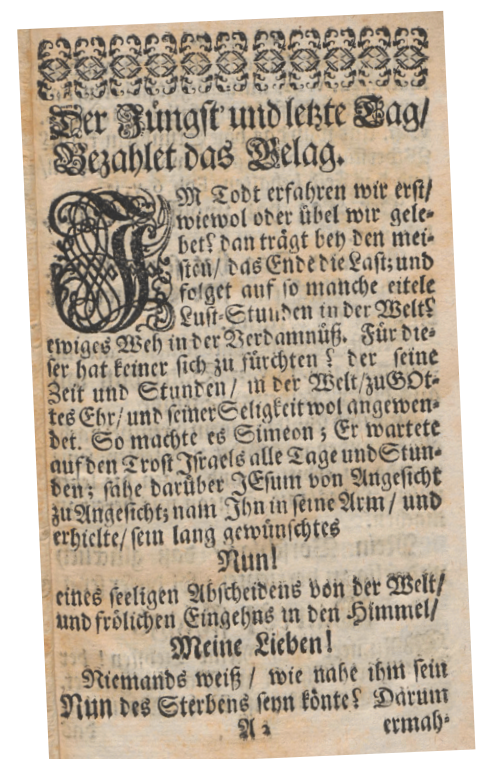 Der Jüngst und letzte Tag/
Bezahlet das Gelag.
IM Todt erfahren wir erst/
wiewol oder übel wir gele-
bet? dan trägt bey den mei-
sten/ das Ende die Last; und
folget auf so manche eitele
Lust-Stunden in der Welt?
ewiges Weh in der Verdamnüß. Für die-
ser hat keiner sich zu fürchten? der seine
Zeit und Stunden/ in der Welt/zu GOt-
tes Ehr/ und seiner Seligkeit wol angewen-
det. So machte es Simeon; Er wartete
auf den Trost Israels alle Tage und Stun-
den; sahe darüber JEsum von Angesicht
zu Angesicht; nam Ihn in seine Arm/ und
erhielte/ sein lang gewünschtes
Nun!
eines seeligen Abscheidens von der Welt/
und frölichen Eingehns in den Himmel/
Meine Lieben!
Niemands weiß/ wie nahe ihm sein
Nun des Sterbens seyn könte? Darum
A 2 ermah-